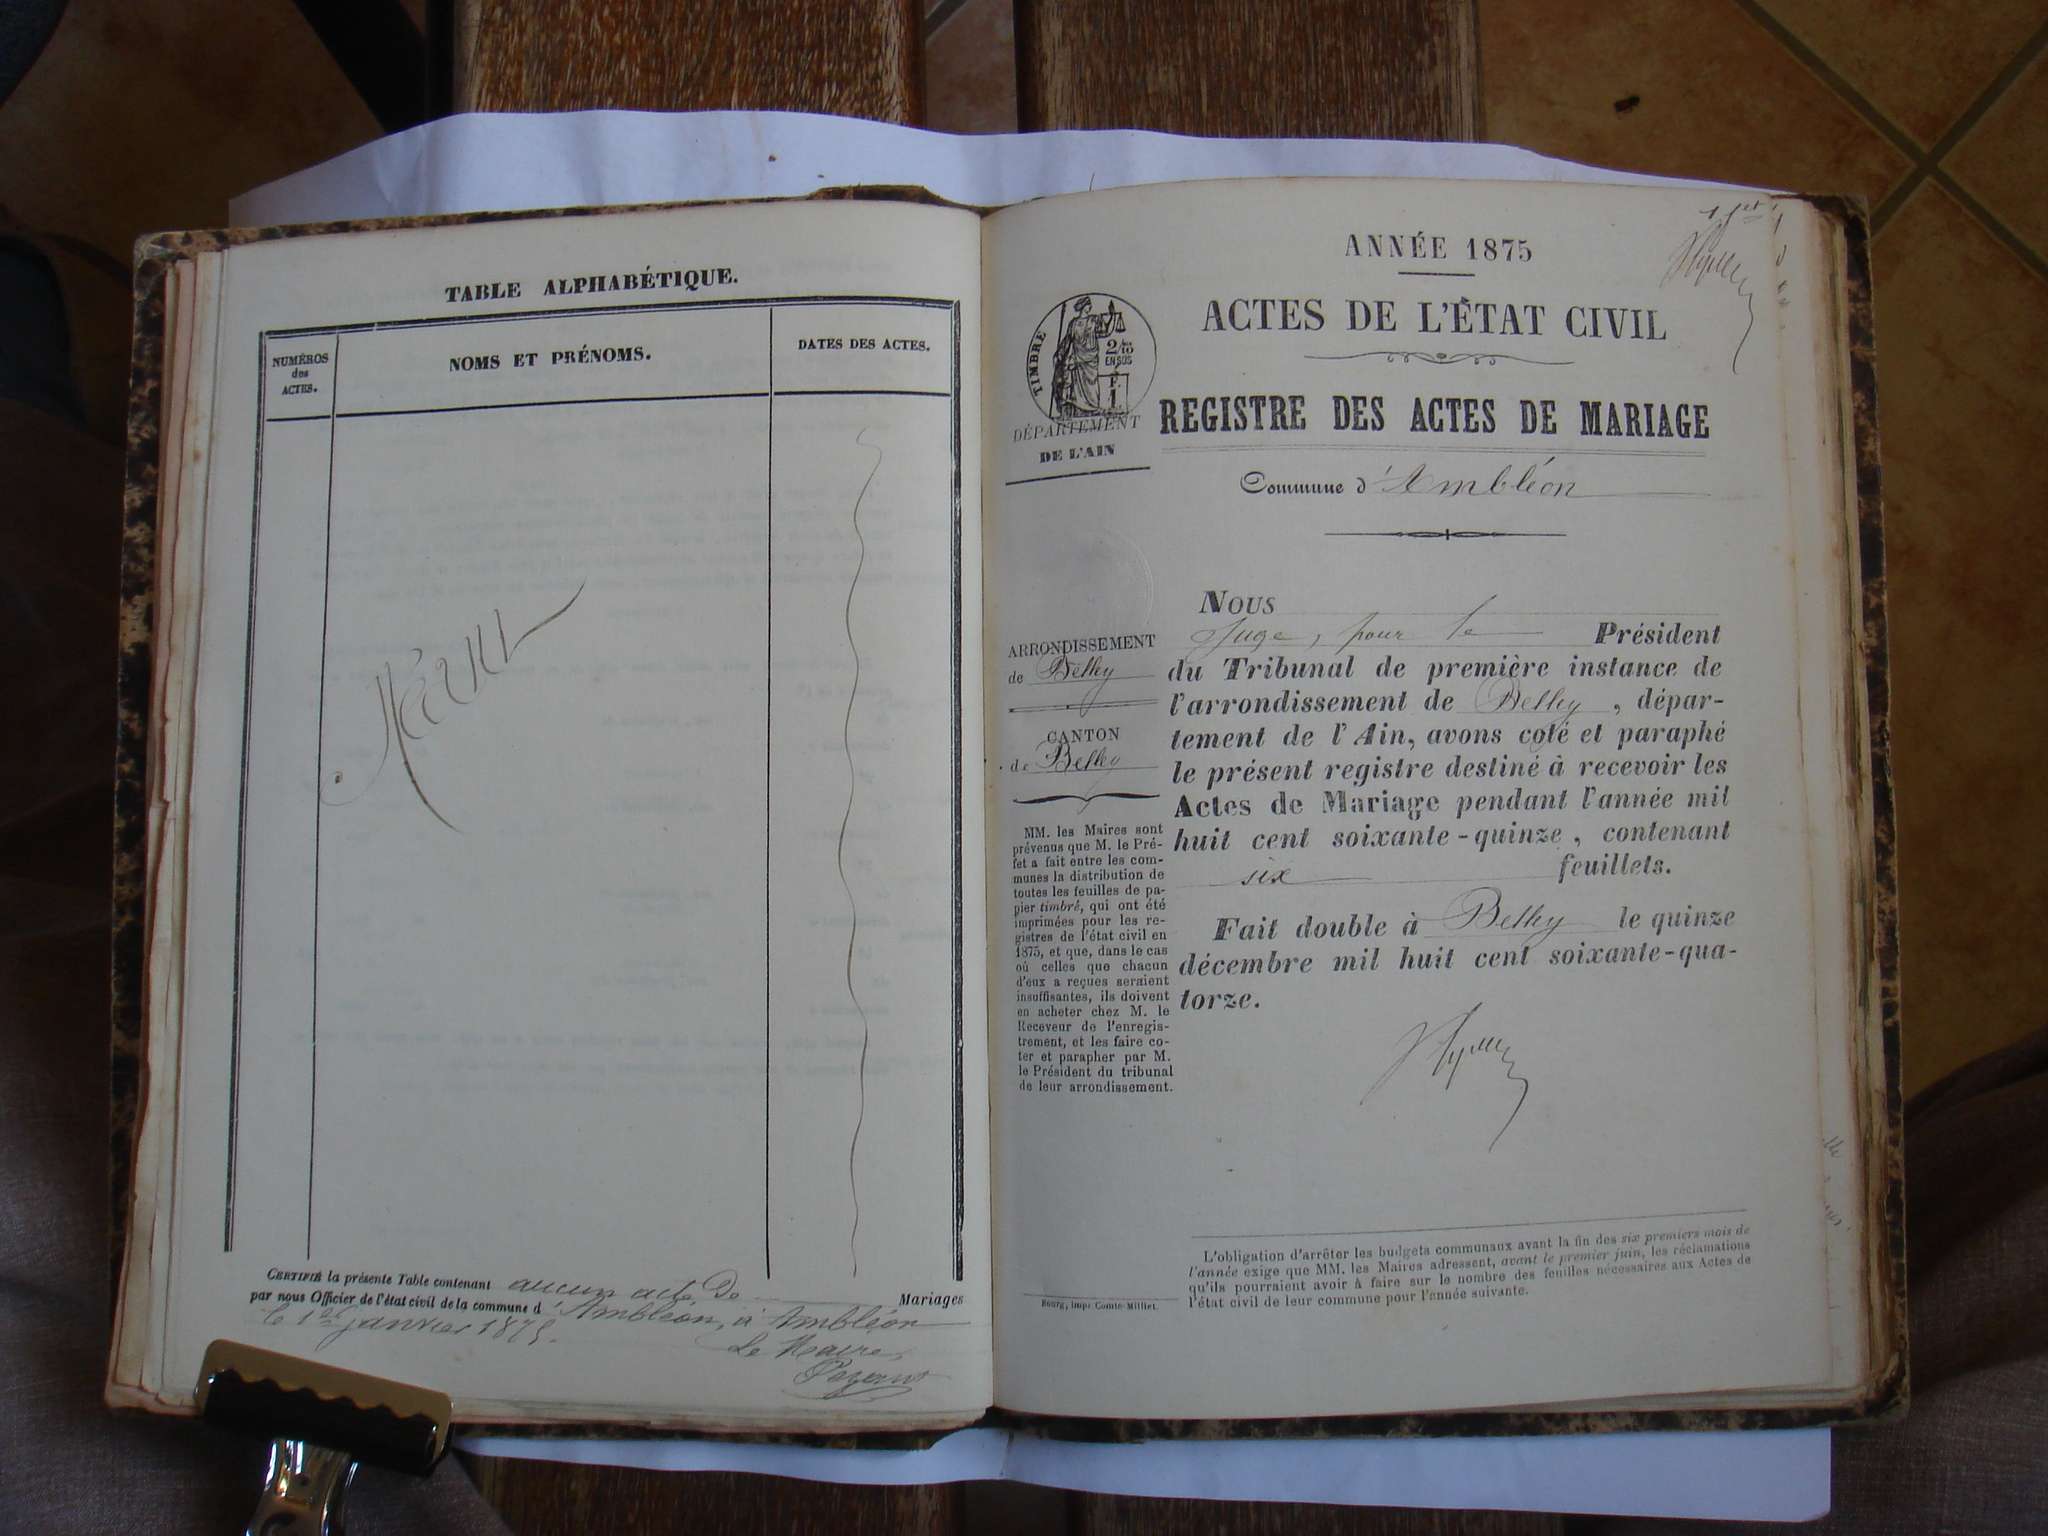 TABLE ALPHABÉTIQUE.
NUMÉROS
des
ACTES.
NOMS ET PRÉNOMS.
DATES DES ACTES.
Néant
CERTIFIÉ la présente Table contenant aucun acte de Mariages
par nous Officier de l'état civil de la commune d'Ambléon, à Ambléon
le 1er janvier 1875.
Le Maire,
1er
ANNÉE 1875
ACTES DE L'ÉTAT CIVIL
TIMBRE
2/10
EN SUS
F.
1.
REGISTRE DES ACTES DE MARIAGE
DÉPARTEMENT
DE L'AIN
Commune d'Ambléon
NOUS
Juge, pour le Président
du Tribunal de première instance de
l'arrondissement de Belley, dépar-
tement de l'Ain, avons coté et paraphé
le présent registre destiné à recevoir les
Actes de Mariage pendant l'année mil
huit cent soixante-quinze, contenant
six feuillets.
Fait double à Belley le quinze
décembre mil huit cent soixante-qua-
torze.
ARRONDISSEMENT
de Belley
CANTON
de Belley
MM. les Maires sont
prévenus que M. le Pré-
fet a fait entre les com-
munes la distribution de
toutes les feuilles de pa-
pier timbré, qui ont été
imprimées pour les re-
gistres de l'état civil en
1875, et que, dans le cas
où celles que chacun
d'eux a reçues seraient
insuffisantes, ils doivent
en acheter chez M. le
Receveur de l'enregis-
trement, et les faire co-
ter et parapher par M.
le Président du tribunal
de leur arrondissement.
Bourg, Impr. Comte-Milliet.
L'obligation d'arrêter les budgets communaux avant la fin des six premiers mois de
l'année exige que MM. les Maires adressent, avant le premier juin, les réclamations
qu'ils pourraient avoir à faire sur le nombre des feuilles nécessaires aux Actes de
l'état civil de leur commune pour l'année suivante.